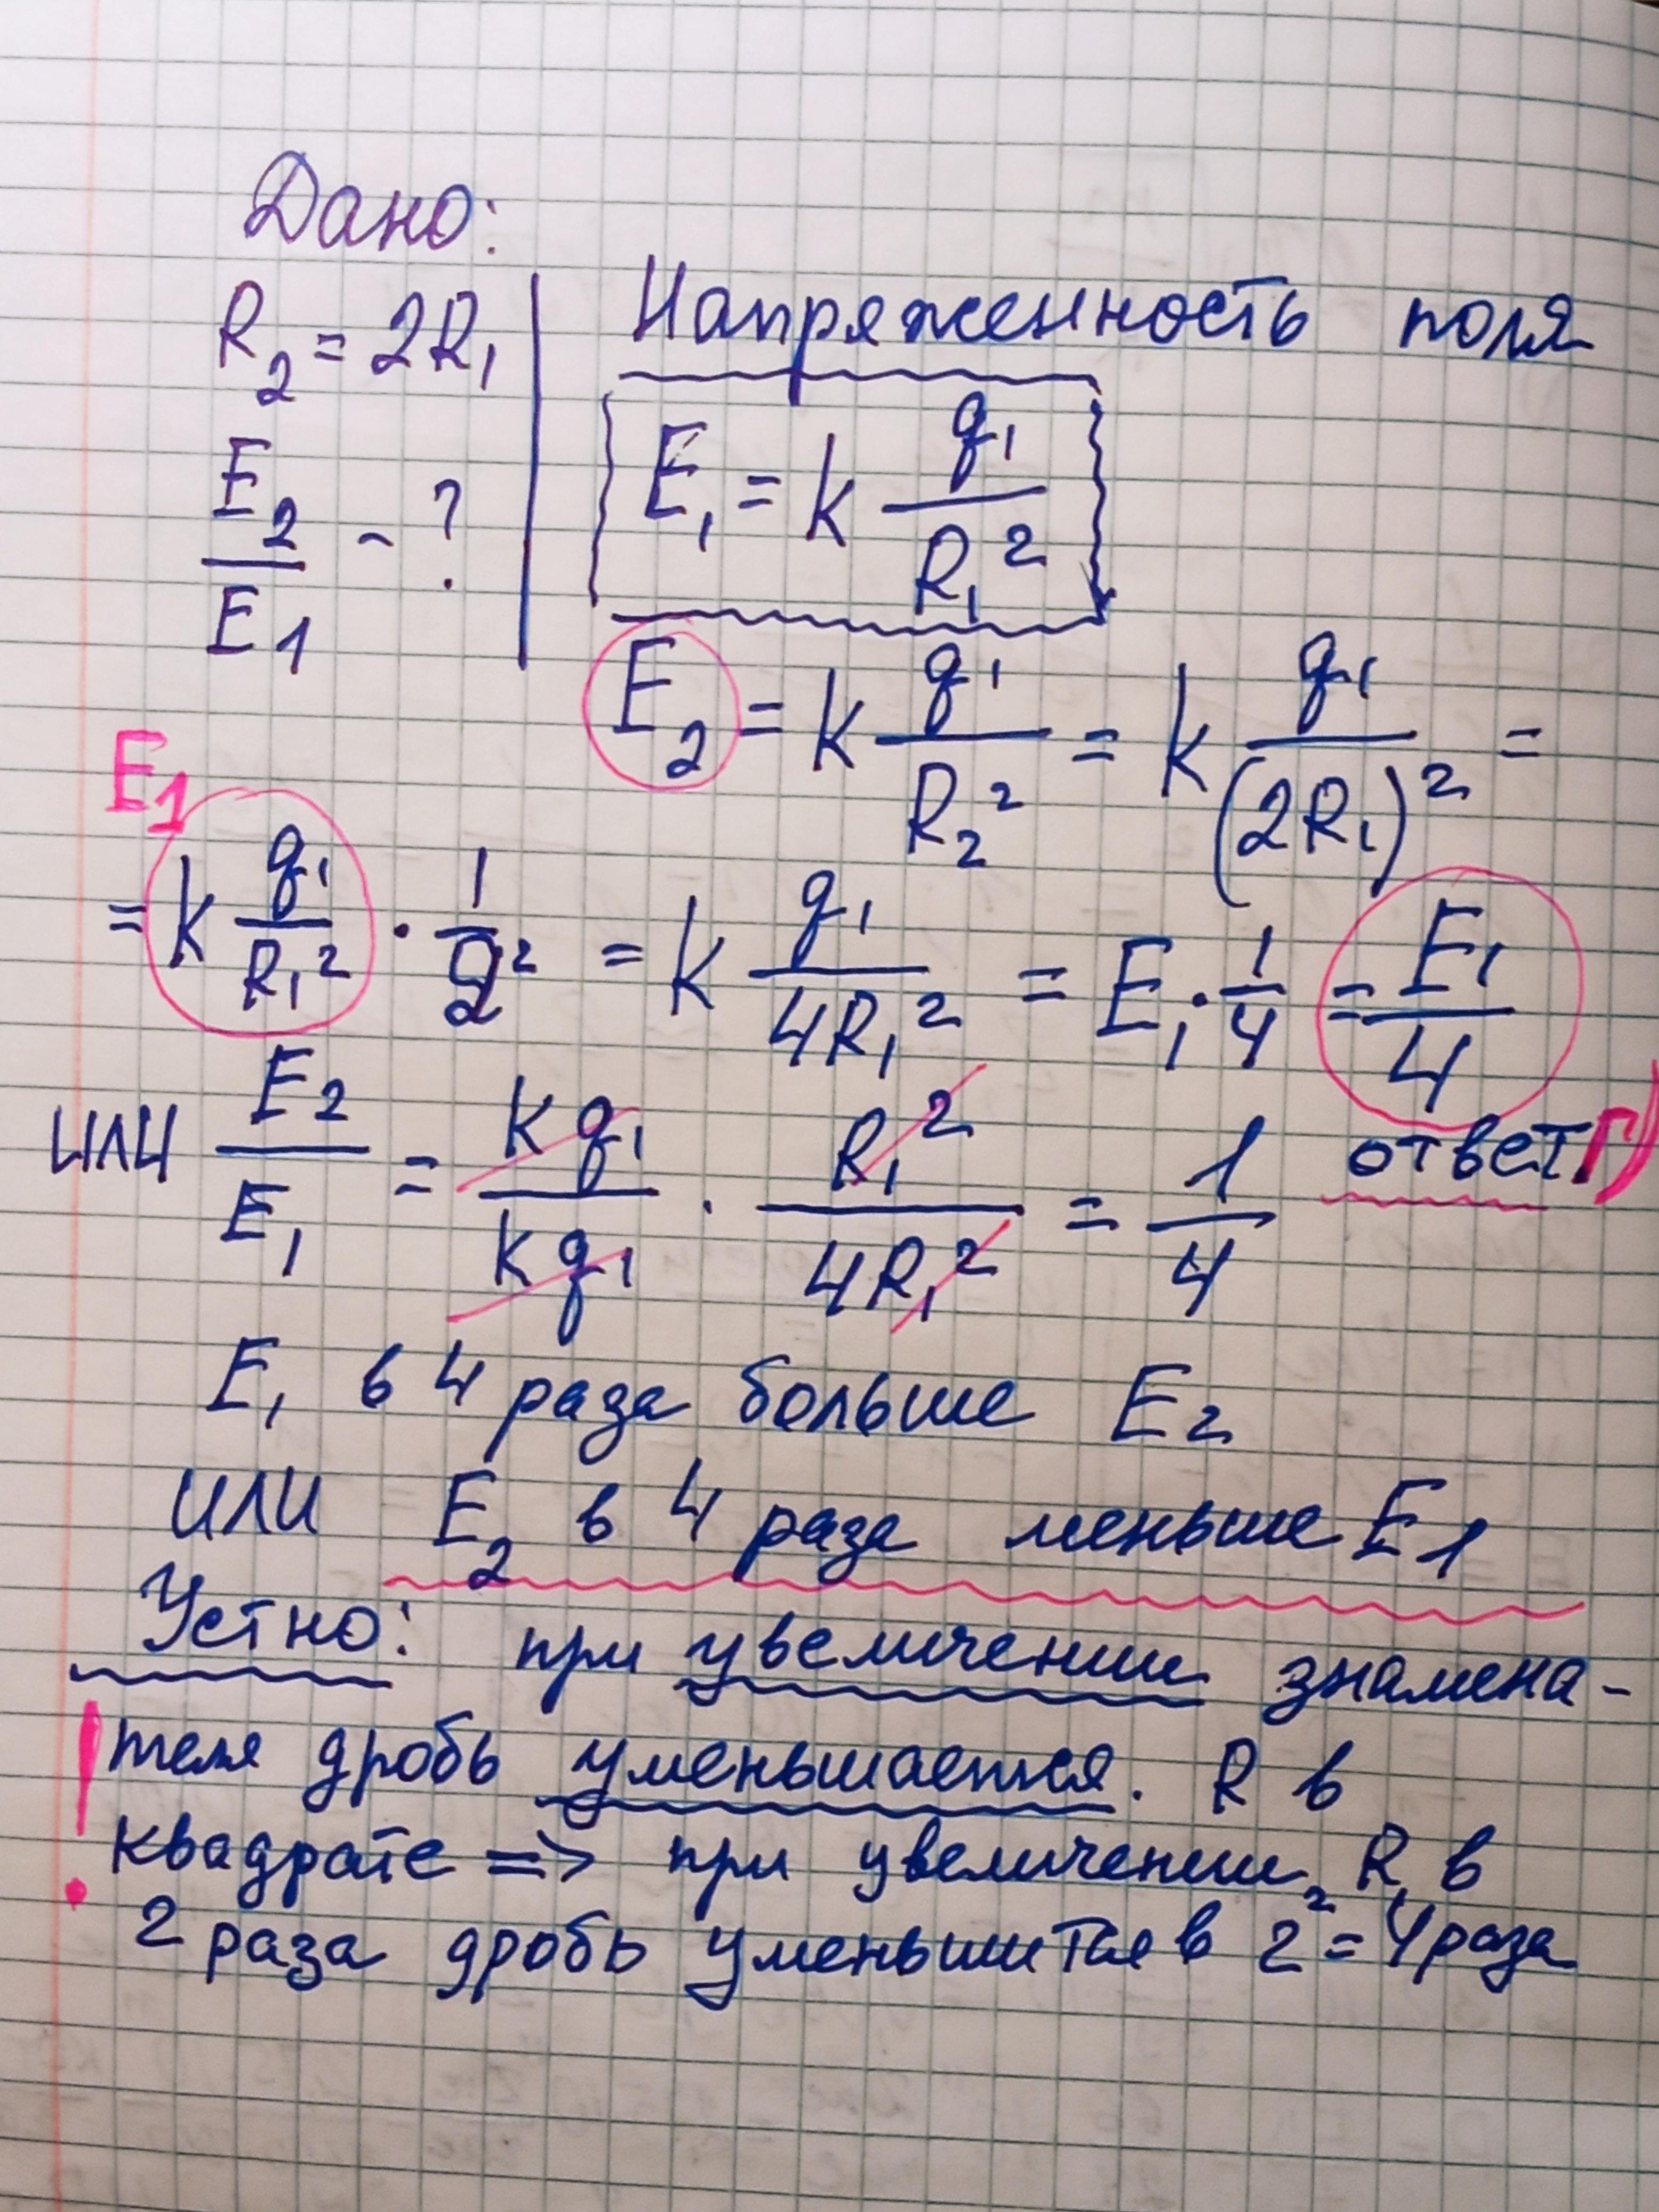 Дано:
R₂ = 2R₁
E₂/E₁ - ?
Напряженность поля
E₁ = k q₁/R₁²
E₂ = k q₁/R₂² = k q₁/(2R₁)² =
E1
= k q₁/R₁² · 1/2² = k q₁/4R₁² = E₁ · 1/4 = E₁/4
ИЛИ E₂/E₁ = kq₁/kq₁ · R₁²/4R₁² = 1/4 ответ Г)
E₁ в 4 раза больше E₂
ИЛИ E₂ в 4 раза меньше E1
Устно: при увеличении знамена-
теля дробь уменьшается. R в
! квадрате => при увеличении R₁ в
2 раза дробь уменьшится в 2² = 4 раза